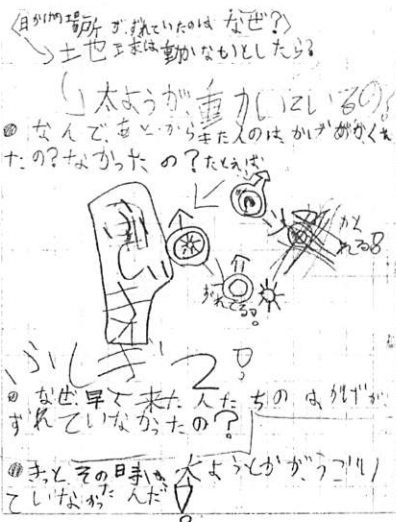 〈日かげの場所がずれていたのはなぜ?〉
↳土也球は動かないとしたら?
↳太ようが、動いているの?
●なんで、あとから来た人のは、かげがかくれ
たの?なかったの?たとえば
ずれてる?
ふしぎ2?
●なぜ、早く来た人たちのは、かげが
ずれていなかったの?
●きっと、その時は、太ようとかが、うごい
ていなかったんだ